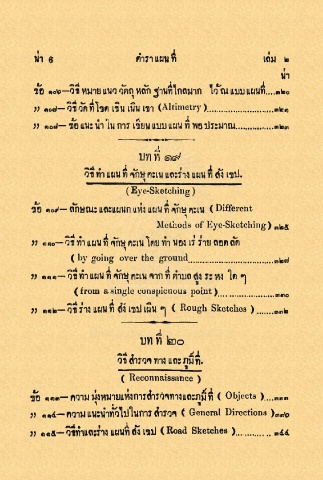 น่า 6 ตำราแผนที่ เล่ม ๒
น่า
ข้อ ๑๐๖—วิธี หมาย แนว วัดถุ หลัก ฐานที่ไกลมาก ไว้ ณ แบบ แผนที่....๓๒๐
" ๑๐๗—วิธี วัด ที่โขด เขิน เนิน เขา (Altimetry)....๓๒๑
" ๑๐๘—ข้อ แนะ นำ ใน การ เขียน แบบ แผน ที่ พอ ประมาณ....๓๒๓
บท ที่ ๑๙
วิธี ทำ แผน ที่ จักษุ คะเน และร่าง แผน ที่ สัง เขป.
(Eye-Sketching)
ข้อ ๑๐๙—ลักษณะ และแผนก แห่ง แผน ที่ จักษุ คะเน (Different
Methods of Eye-Sketching)....๓๒๕
" ๑๑๐—วิธี ทำ แผน ที่ จักษุ คะเน โดย ทำ นอง เร่ ร่าย ลอด ลัด
(by going over the ground....๓๒๗
" ๑๑๑—วิธี ทำ แผน ที่ จักษุ คะเน จาก ที่ ตำบล สูง ระ หง ใด ๆ
(from a single conspicuous point)....๓๓๐
" ๑๑๒—วิธี ร่าง แผน ที่ สัง เขป เผิน ๆ (Rough Sketches)....๓๓๒
บท ที่ ๒๐
วิธี สำรวจ ทาง และ ภูมิ์ที่.
(Reconnaissance)
ข้อ ๑๑๓—ความ มุ่งหมายแห่งการสำรวจทางและภูมิ์ที่ (Objects)....๓๓๓
" ๑๑๔—ความ แนะนำทั่วไปในการ สำรวจ (General Directions)
" ๑๑๕—วิธีทำและร่าง แผนที่ สัง เขป (Road Sketches)....๓๔๔